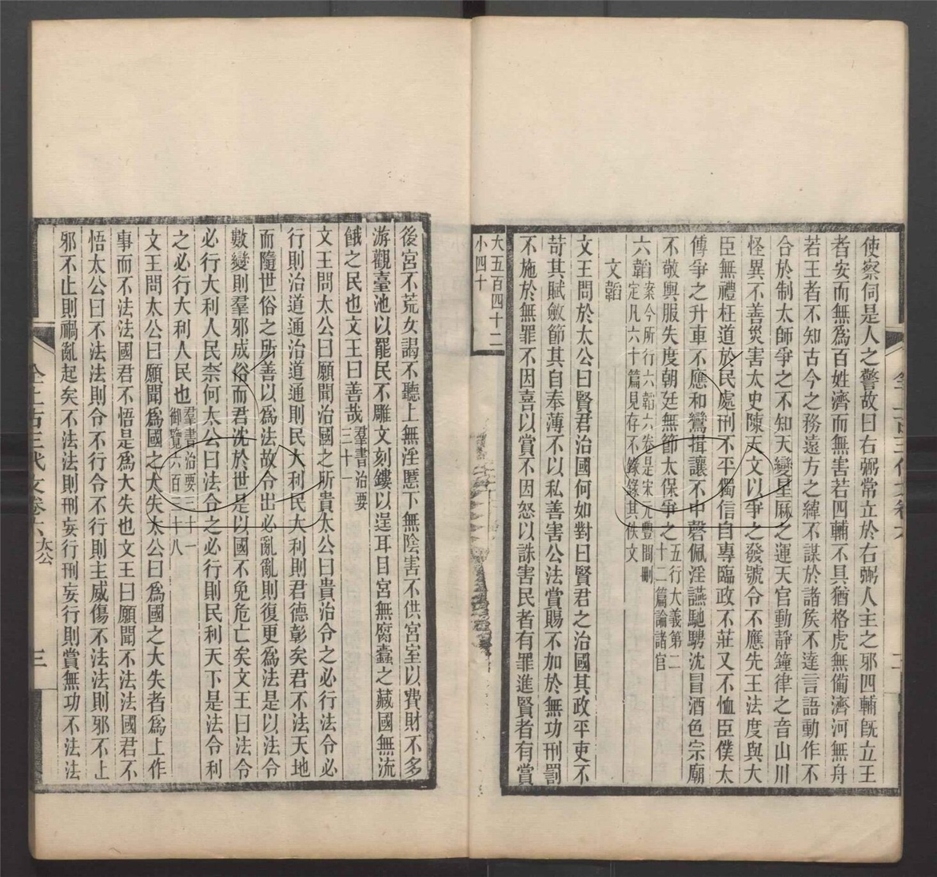 使察伺是人之警故曰右弼常立於右弼人主之邪四輔旣立王
者安而無爲百姓濟而無害若四輔不具猶格虎無備濟河無舟
若王者不知古今之務遠方之緯不謀於諸矦不逹言語動作不
合於制太師爭之不知天變星厤之運天官動靜鐘律之音山川
怪異不善災害太史陳天文以爭之發號令不應先王法度與大
臣無禮枉道於民處刑不平獨信自專臨政不莊又不恤臣僕太
傅爭之升車不應和鸞揖讓不中磬佩淫讌馳騁沈冒酒色宗廟
不敬輿服失度朝廷無節太保爭之五行大義第二
十二篇論諸官
六韜案今所行六韜六卷是宋元豐間刪
定凡六十篇見存不錄錄其佚文
文韜
文王問於太公曰賢君治國何如對曰賢君之治國其政平吏不
苛其賦斂節其自奉薄不以私善害公法賞賜不加於無功刑罰
不施於無罪不因喜以賞不因怒以誅害民者有罪進賢者有賞
大五百四十二
小四十
後宮不荒女謁不聽上無淫慝下無陰害不供宮室以費財不多
游觀臺池以罷民不雕文刻鏤以逞耳目宮無腐蠹之藏國無流
餓之民也文王曰善哉羣書治要
三十一
文王問太公曰願聞治國之所貴太公曰貴法令之必行法令必
行則治道通治道通則民大利民大利則君德彰矣君不法天地
而隨世俗之所善以爲法故令出必亂亂則復更爲法是以法令
數變則羣邪成俗而君沈於世是以國不免危亡矣文王曰法令
必行大利人民柰何太公曰法令之必行則民俗利天下是法令
之必行大利人民也羣書治要三十一
御覽六百三十八
文王問太公曰願聞爲國之大失太公曰爲國之大失者爲上作
事而不法法國君不悟是爲大失也文王曰願聞不法法國君不
悟太公曰不法法則令不行令不行則主威傷不法法則邪不止
邪不止則禍亂起矣不法法則刑妄行刑妄行則賞無功不法法
全上古三代文卷六 太公
三